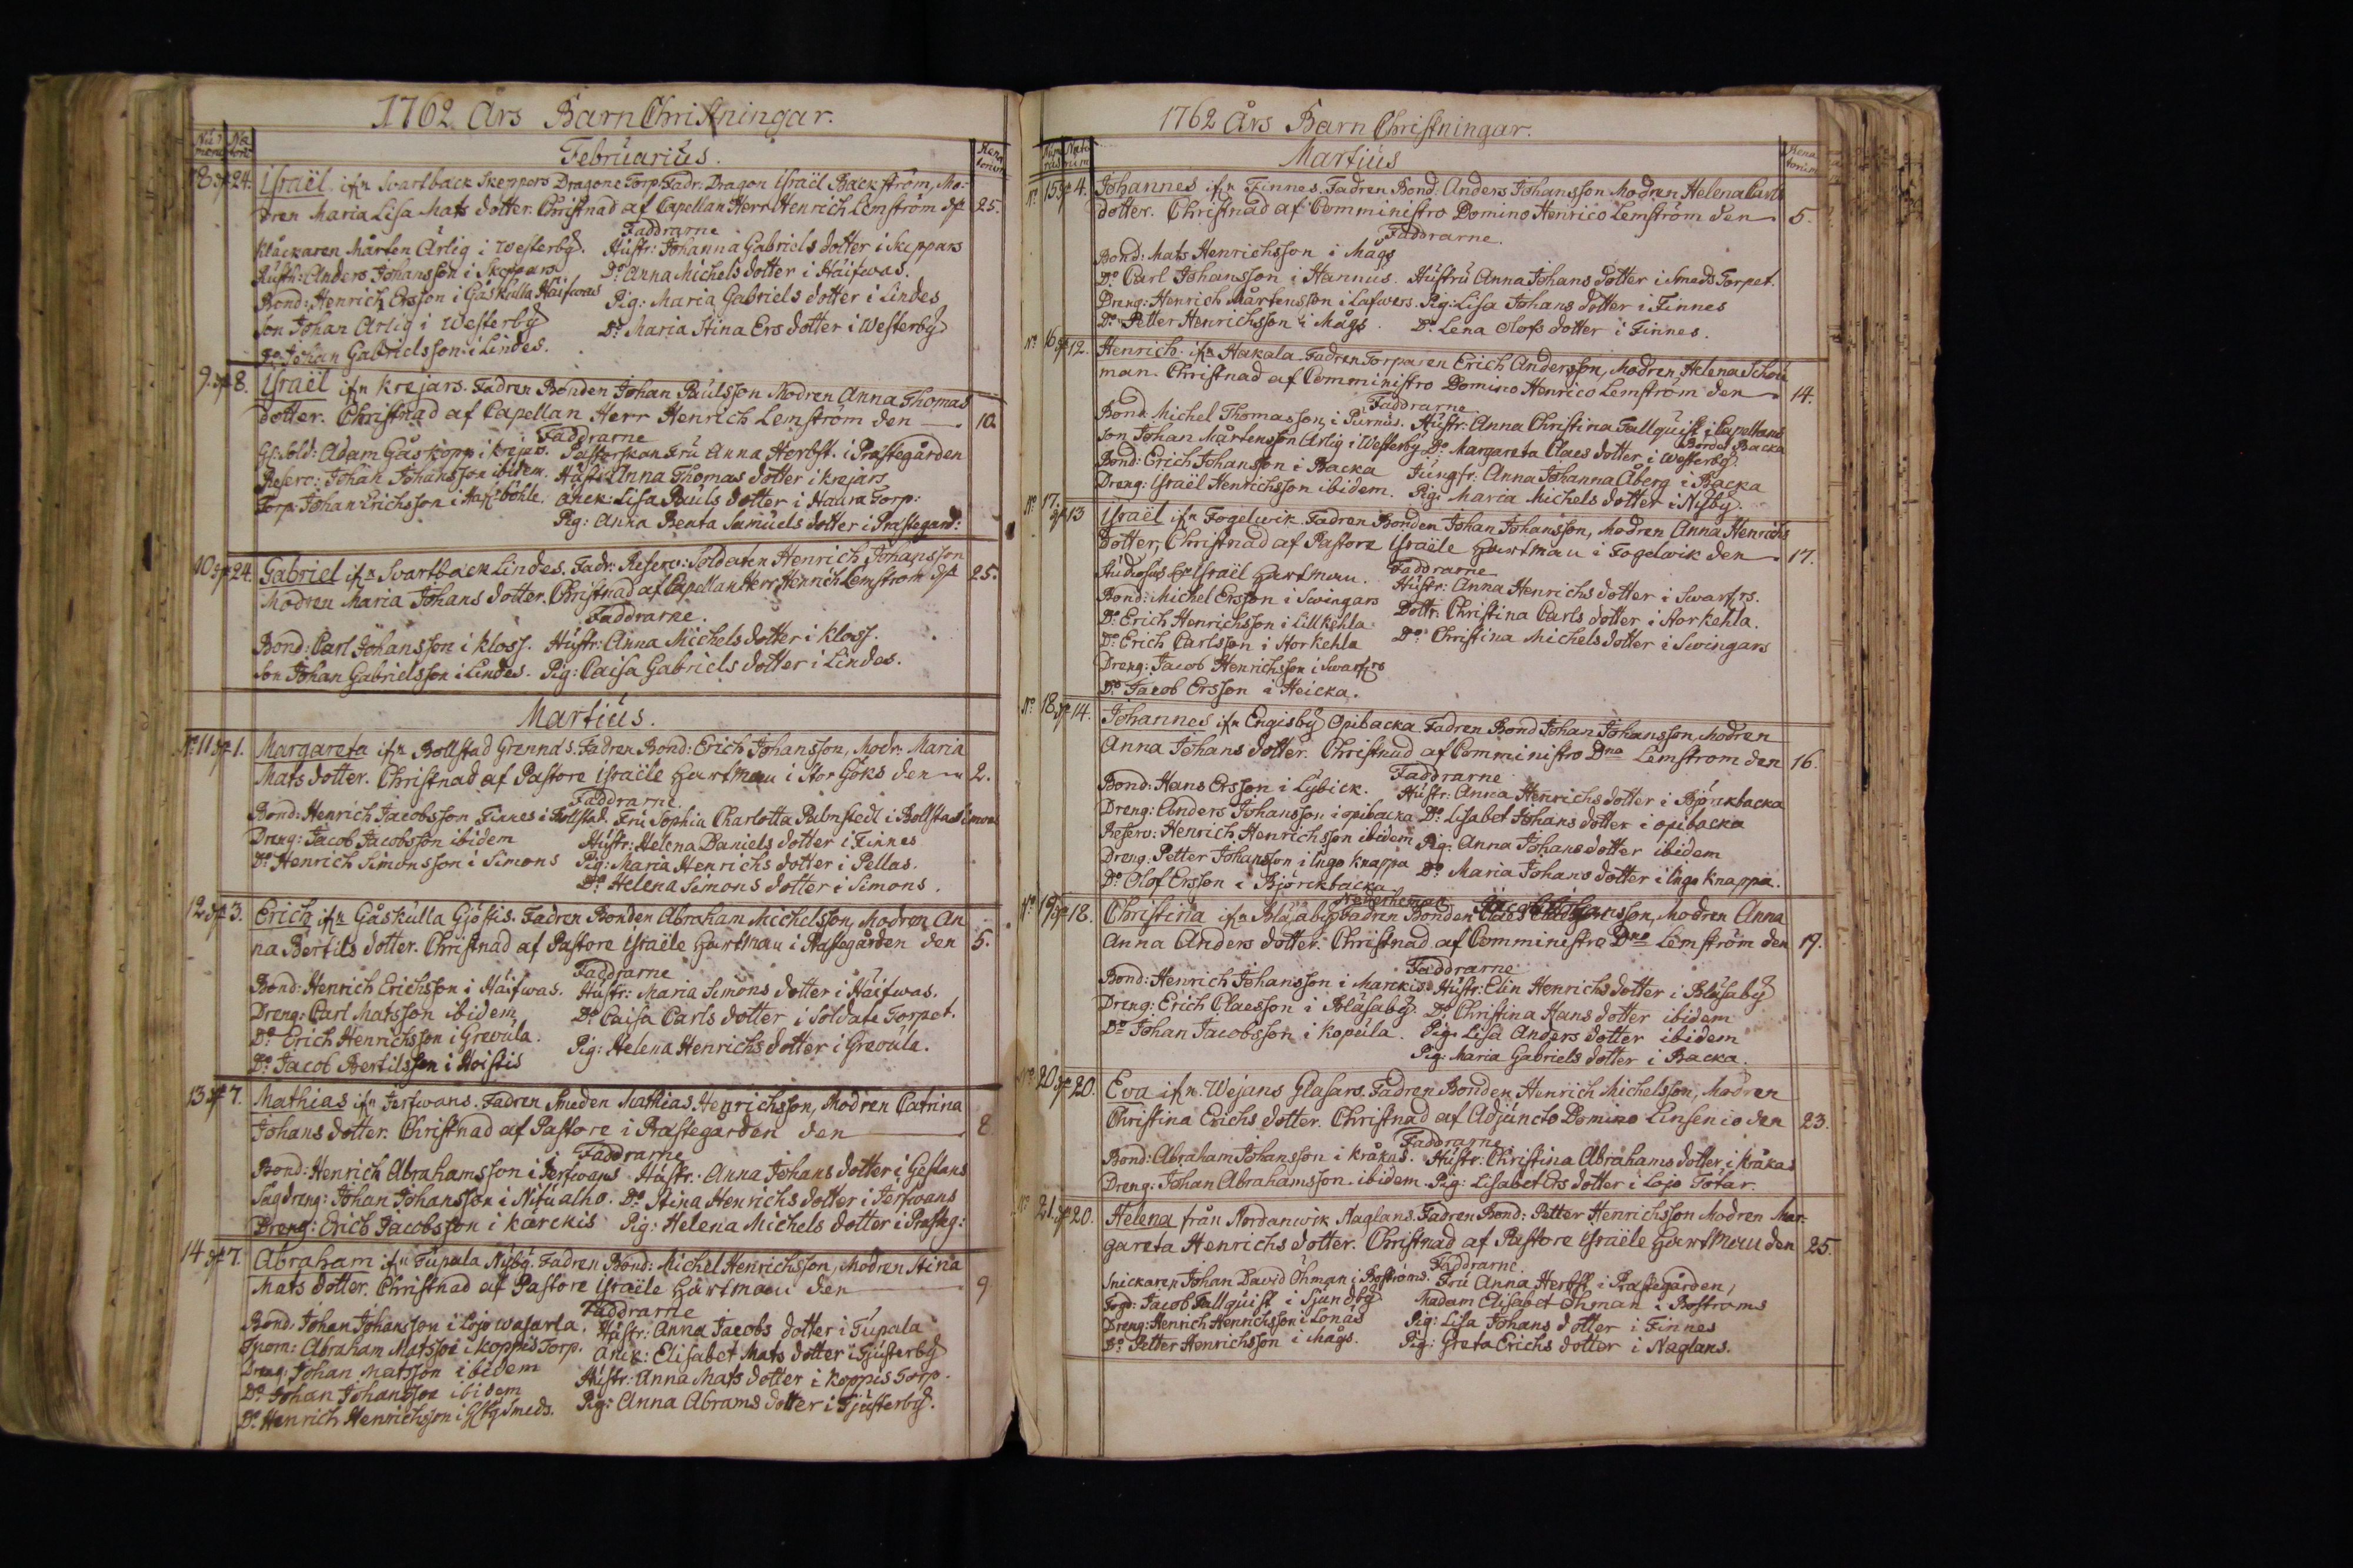 1762 Års Barn Christningar.
Februarius.
8. d. 24. Israël ifn Svartback Skeppars Dragone Torp. Fadr. Dragon Israël Backström, Mo-
dren Maria Lisa Mats dotter. Christnad af Capellan Herr Henrich Lemström d. 25.
Faddrarne
Klåckaren Mårten Ärlig i Westerby. Hustr: Johanna Gabriels dotter i Skeppars
Anders Johansson i Skeppars Do Anna Michels dotter i Häifwas.
Bond: Henrich Ersson i Gåskulla Häifwas Pig: Maria Gabriels dotter i Lindes
Son Johan Ärlig i Westerby Do Maria Stina Ers dotter i Westerby
Do Johan Gabrielsson i Lindes.
9. d. 8. Israël ifn Krejars. Fadren Bonden Johan Paulsson Modren Anna Thomas
dotter. Christnad af Capellan Herr Henrich Lemström den 10.
Faddrarne
Adam Gåskopp i Krejars. Pastorskan Fru Anna Herbst. i Prästegården
Reserv: Johan Johansson ibidem. Hustr: Anna Thomas dotter i Krejars
Torp: Johan Erichsson i böhle. Anck: Lisa Pauls dotter i Torp:
Pig: Anna Beata Samuels dotter i Prästegård:
10 d. 24. Gabriel ifn Svartback Lindes. Fadr: Reserv: Soldaten Henrich Johansson
Modren Maria Johans dotter. Christnad af Capellan Herr Henrich Lemström d. 25.
Faddrarne.
Bond: Carl Johansson i Kloss. Hustr: Anna Michels dotter i Kloss.
Son Johan Gabrielsson i Lindes. Pig: Caisa Gabriels dotter i Lindes.
Martius.
No 11 d. 1. Margareta ifn Bollstad Grennas. Fadren Bond: Erich Johansson, Modr: Maria
Mats dotter. Christnad af Pastore Israële Hartman i Stor Göks den 2.
Faddrarne.
Bond: Henrich Jacobsson Finnes i Bollstad. Fru Sophia Charlotta Palmfedt i Bollstad Simons
Dreng: Jacob Jacobsson ibidem Hustr: Helena Daniels dotter i Finnes
Do Henrich Simonsson i Simons Pig: Maria Henrichs dotter i Pellas.
Do Helena Simons dotter i Simons.
12 d. 3. Erich ifn Gåskulla Gjösis. Fadren Bonden Abraham Michelsson, Modren An
na Bertils dotter. Christnad af Pastore Israële Hartman i Prästegården den 5.
Faddrarne
Bond: Henrich Erichsson i Häifwas. Hustr: Maria Simons dotter i Häifwas.
Dreng: Carl Matsson ibidem Do Caisa Carls dotter i Soldate Torpet.
Do Erich Henrichsson i Grevula. Pig: Helena Henrichs dotter i Grevula.
Do Jacob Bertilsson i Hoistis
13 d. 7. Mathias ifn Jerfwans. Fadren Smeden Mathias Henrichsson, Modren Catrina
Johans dotter. Christnad af Pastore i Prästegården den 8.
Faddrarne
Bond: Henrich Abrahamsson i Jerfwans Hustr: Anna Johans dotter i Gestans
Sagdreng: Johan Johansson i Nitualho. Do Stina Henrichs dotter i Jerfwans
Dreng: Erich Jacobsson i Karckis Pig: Helena Michels dotter i Prästeg:
14 d. 7. Abraham ifn Tupala Nisby. Fadren Bond: Michel Henrichsson, Modren Stina
Mats dotter. Christnad af Pastore Israële Hartman den 9
Faddrarne
Bond: Johan Johansson i Lojo wasarla. Hustr: Anna Jacobs dotter i Tupala
Abraham Matsson i Koppis Torp. Anck: Elisabet Mats dotter i Tjusterby
Dreng: Johan Matsson ibidem Hustr: Anna Mats dotter i Koppis Torp.
Do Johan Johansson ibidem Pig: Anna Abrams dotter i Tjusterby.
Do Henrich Henrichsson i Smeds.
1762 Års Barn Christningar.
Martius
No 15 d. 4. Johannes ifn Finnes. Fadren Bond. Anders Johansson Modren Helena Carls
dotter. Christnad af Comministro Domino Henrico Lemström den 5.
Faddrarne.
Bond: Mats Henrichsson i Mågs
Do Carl Johansson i Hannus. Hustru Anna Johans dotter i Smeds Torpet.
Dreng: Henrich Mårtensson i Lafwers. Pig: Lisa Johans dotter i Finnes
Do Petter Henrichsson i Mågs. Do Lena Olofs dotter i Finnes.
No 16 d. 12. Henrich ifn Hakala. Fadren Torparen Erich Andersson, Modren Helena
man. Christnad af Comministro Domino Henrico Lemström den 14.
Faddrarne
Bond. Michel Thomasson i Purnus. Hustr: Anna Christina Tallquist i Capellans
Son Johan Mårtensson Ärlig i Westerby Do Margareta Claes dotter i Westerby. Bordes Backa
Bond: Erich Johansson i Backa Jungfr: Anna Johanna Åberg i Backa
Dreng: Israël Henrichsson ibidem. Pig: Maria Michels dotter i Nisby.
No 17. d. 13 Israël ifn Fogelwik. Fadren Bonden Johan Johansson, Modren Anna Henrichs
dotter, Christnad af Pastore Israële Hartman i Fogelwik den 17.
Faddrarne
Studiosus Israël Hartman. Hustr: Anna Henrichs dotter i Swarfrs.
Bond: Michel Ersson i Swingars Dottr: Christina Carls dotter i Stor kehla.
Do Erich Henrichsson i Lill kehla Do Christina Michels dotter i Swingars
Do Erich Carlsson i Stor kehla
Dreng: Jacob Henrichsson i Swarfrs
Do Jacob Ersson i Heicka.
No 18 d. 14. Johannes ifn Engisby Opibacka Fadren Bond Johan Johansson, Modren
Anna Johans dotter. Christnad af Comministro Dno Lemström den 16.
Faddrarne
Bond: Hans Ersson i Lybick. Hustr: Anna Henrichs dotter i Björckbacka
Dreng: Anders Johansson i opibacka Do Lisabet Johans dotter i opibacka
Reserv: Henrich Henrichsson ibidem Pig: Anna Johans dotter ibidem
Dreng: Petter Johansson i Ingo Knappa Do Maria Johans dotter i Ingo Knappa.
Do Olof Ersson i Björckbacka
No 19 d. 18. Christina ifn Blåsaby Fadren Bonden Jacob Johansson, Modren Anna
Anna Anders dotter. Christnad af Comministro Dno Lemström den 19.
Faddrarne
Bond: Henrich Johansson i Marckis. Hustr: Elin Henrichs dotter i Blåsaby
Dreng: Erich Claesson i Blåsaby. Do Christina Hans dotter ibidem
Do Johan Jacobsson i Kopula. Pig: Lisa Anders dotter ibidem
Pig: Maria Gabriels dotter i Backa.
No 20 d. 20. Eva ifn. Wejans Glasars. Fadren Bonden Henrich Michelsson, Modren
Christina Erichs dotter. Christnad af Adjuncto Domino Linsenio den 23.
Faddrarne
Bond: Abraham Johansson i Kråkas. Hustr: Christina Abrahams dotter i Kråkas
Dreng: Johan Abrahamsson ibidem Pig: Lisabet Ers dotter i Lojo Tötar.
No 21. d. 20. Helena från Nordanwik Naglans. Fadren Bond: Petter Henrichsson Modren Mar-
gareta Henrichs dotter. Christnad af Pastore Israële Hartman den 25.
Faddrarne.
Snickaren Johan David Öhman i Boströms. Fru Anna Herbst i Prästegården,
Fogd: Jacob Tallquist i Sjundby Madam Elisabet Öhman i Boströms
Dreng: Henrich Henrichsson i Lonas Pig: Lisa Johans dotter i Finnes
Do Petter Henrichsson i Mågs. Pig: Greta Erichs dotter i Naglans.